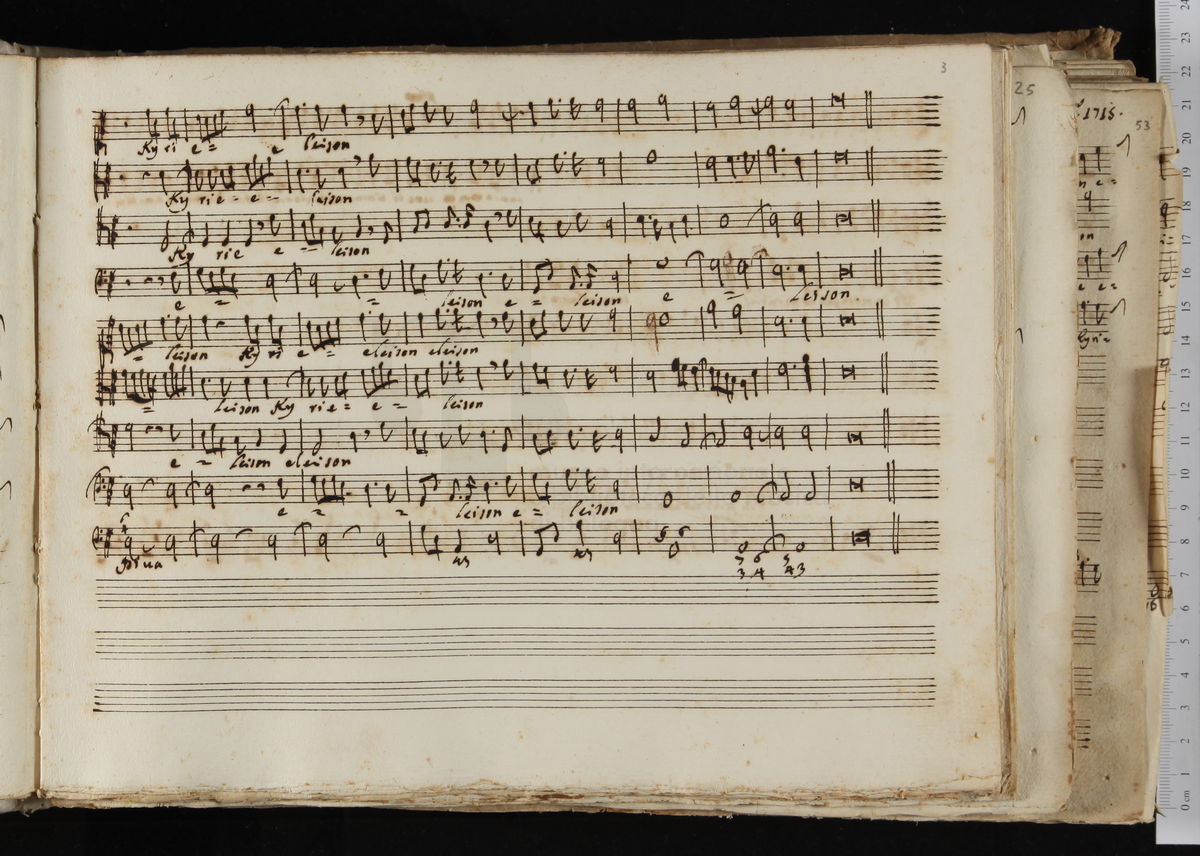 3
Ky ri e = e leison
Ky rie - e - leison
Ky rie e = leison
e = = leison e = leison e = leison.
= leison Ky ri e = eleison eleison
= leison Ky rie = e = leison
e = leison eleison
e = = leison e = leison
43 43 5 6 5
3 4 43
25
1715.
53
n e=
on
e e=
Kyri=
16
24
23
22
21
20
19
18
17
16
15
14
13
12
11
10
9
8
7
6
5
4
3
2
1
0 cm